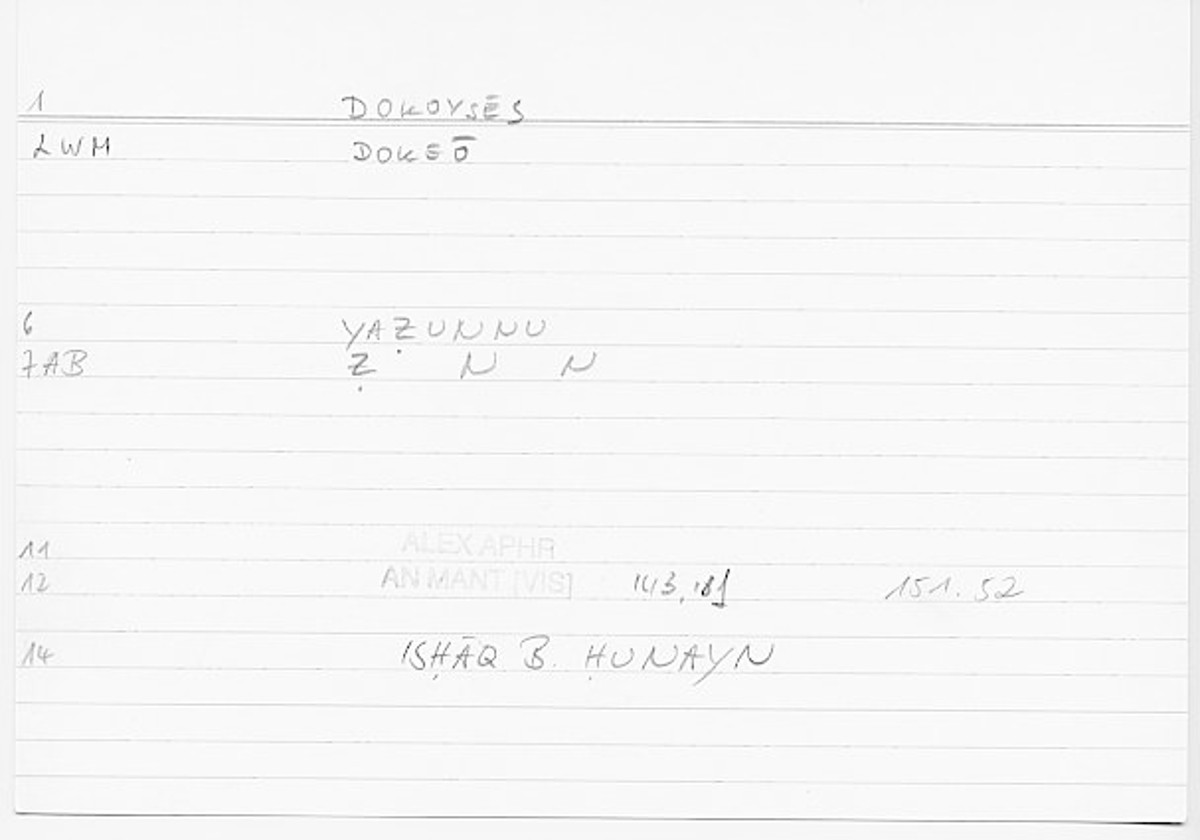 1 DOKOYSĒS
LWM DOKEŌ
6 YAẒUNNU
7AB Ẓ N N
11 ALEX APHR
12 AN MANT [VIS] 143,18f 151.52
14 ISḤĀQ B. ḤUNAYN